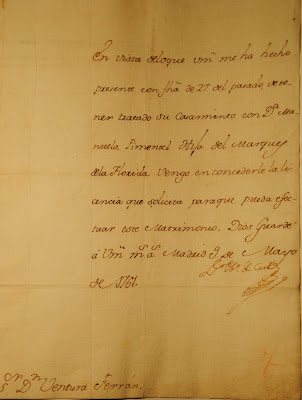 En vista de lo que Vm me ha hecho
presente con fha de 27 del pasado, de te-
ner tratado su Casamiento con Dª Ma-
nuela Pimentel Hija del Marques
dela Florida Vengo en concederle la li-
cencia que solicita paraque pueda efec-
tuar este Matrimonio. Dios Guarde
á Vm ms as Madrid 9 de Mayo
de 1761.
Sr Dn Ventura Ferrán.